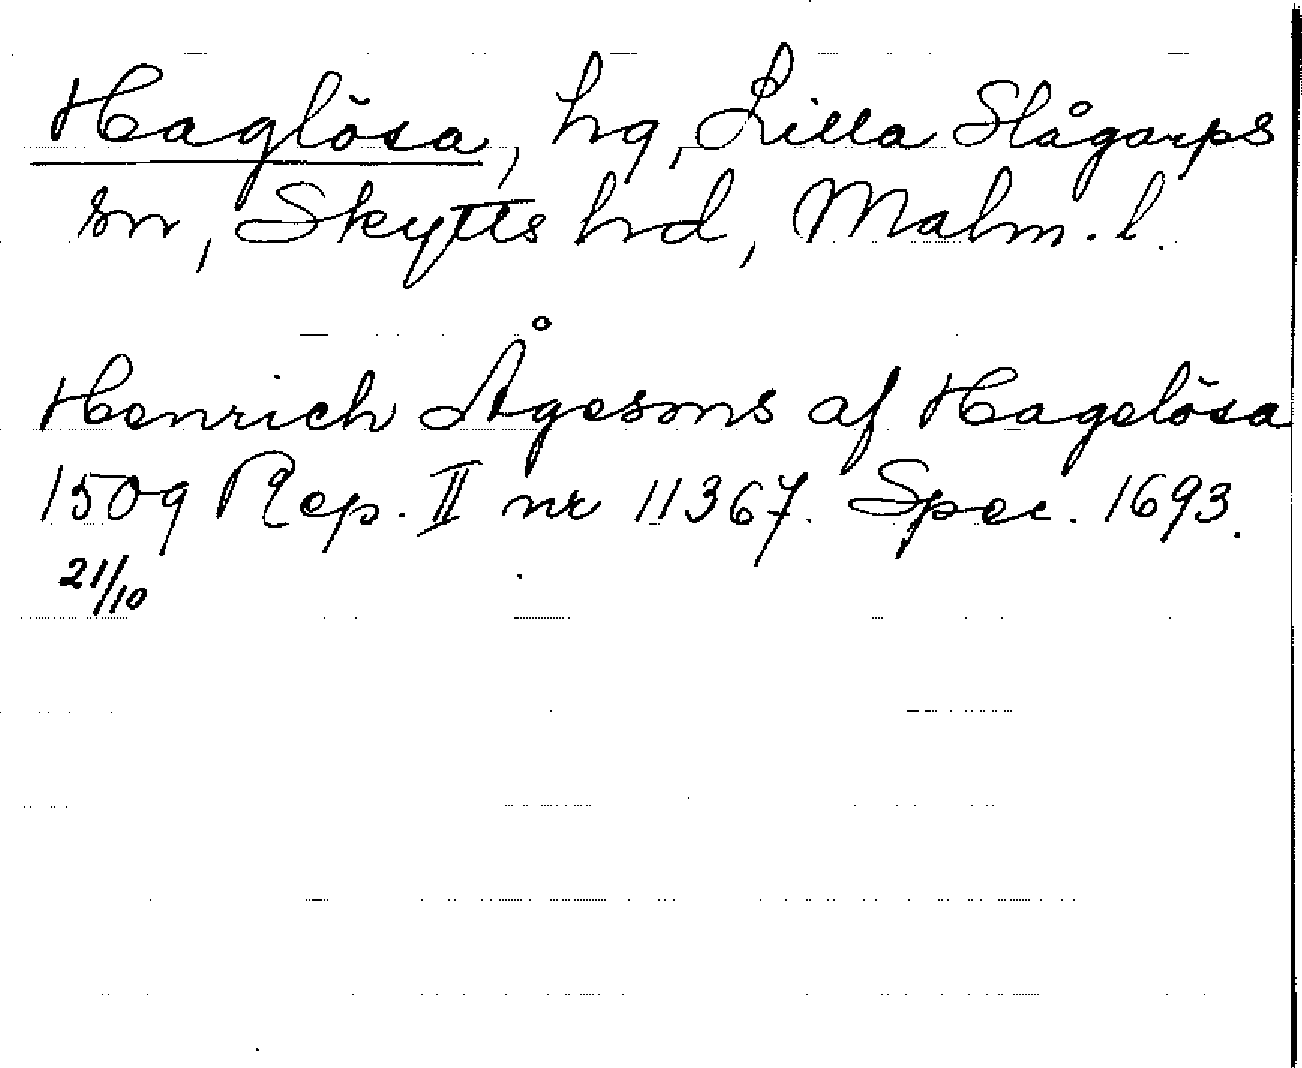 Haglösa, hg, Lilla Slågarps
sn, Skytts hd, Malm. l.
Henrich Ågesøns af Hagelösa
1509 Rep. II nr 11367. Spec. 1693.
21/10